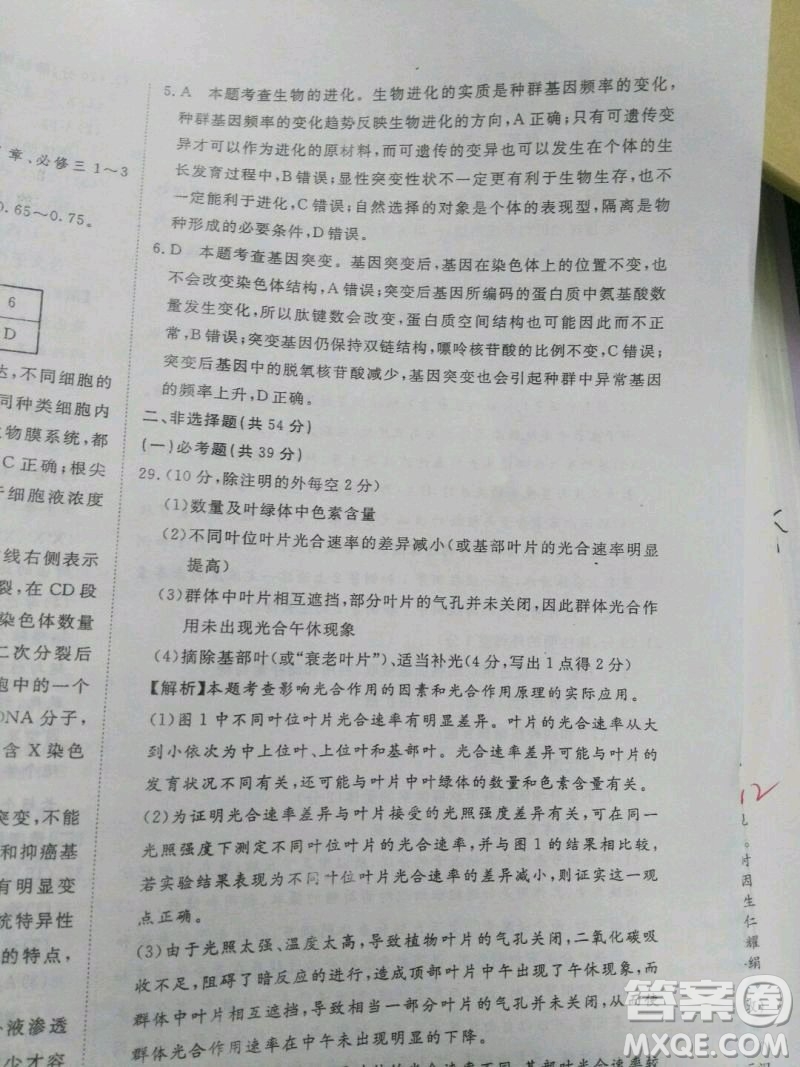 章、必修三1～3
0.65～0.75。
6
D
达，不同细胞的
同种类细胞内
生物膜系统，都
C正确；根尖
于细胞液浓度
线右侧表示
裂，在CD段
染色体数量
二次分裂后
胞中的一个
DNA分子，
含X染色
突变，不能
和抑癌基
有明显变
统特异性
的特点，
液渗透
少才容
5. A　本题考查生物的进化。生物进化的实质是种群基因频率的变化，
种群基因频率的变化趋势反映生物进化的方向，A正确；只有可遗传变
异才可以作为进化的原材料，而可遗传的变异可以发生在个体的生
长发育过程中，B错误；显性突变性状不一定更有利于生物生存，也不
一定能利于进化，C错误；自然选择的对象是个体的表现型，隔离是物
种形成的必要条件，D错误。
6. D　本题考查基因突变。基因突变后，基因在染色体上的位置不变，也
不会改变染色体结构，A错误；突变后基因所编码的蛋白质中氨基酸数
量发生变化，所以肽键数会改变，蛋白质空间结构也可能因此而不正
常，B错误；突变基因仍保持双链结构，嘌呤核苷酸的比例不变，C错误；
突变后基因中的脱氧核苷酸减少，基因突变也会引起种群中异常基因
的频率上升，D正确。
二、非选择题(共54分)
(一)必考题(共39分)
29.(10分，除注明的外每空2分)
(1)数量及叶绿体中色素含量
(2)不同叶位叶片光合速率的差异减小(或基部叶片的光合速率明显
提高)
(3)群体中叶片相互遮挡，部分叶片的气孔并未关闭，因此群体光合作
用未出现光合午休现象
(4)摘除基部叶(或“衰老叶片”)、适当补光(4分，写出1点得2分)
【解析】本题考查影响光合作用的因素和光合作用原理的实际应用。
(1)图1中不同叶位叶片光合速率有明显差异。叶片的光合速率从大
到小依次为中上位叶、上位叶和基部叶。光合速率差异可能与叶片的
发育状况不同有关，还可能与叶片中叶绿体的数量和色素含量有关。
(2)为证明光合速率差异与叶片接受的光照强度不同有关，可在同一
光照强度下测定不同叶位叶片的光合速率，并与图1的结果相比较，
若实验结果表现为不同叶位叶片光合速率的差异减小，则证实这一观
点正确。
(3)由于光照太强、温度太高，导致植物叶片的气孔关闭，二氧化碳吸
收不足，阻碍了暗反应的进行，造成顶部叶片中午出现午休现象，而在
群体中叶片相互遮挡，导致中午时一部分叶片的气孔并未关闭，从而使
群体光合作用速率在中午未出现明显的下降。
12
时
因
生
仁
耀
绢
答案圈
MXQE.COM